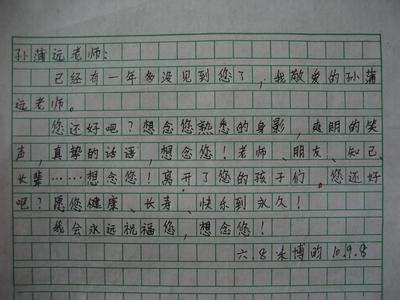 孙蒲远老师:
已经有一年多没见到您了,我敬爱的孙蒲
远老师。
您还好吧?想念您熟悉的身影,爽朗的笑
声,真挚的话语,想念您!老师、朋友、知己、
长辈……想念您!离开了您的孩子们,您还好
吧?愿您健康、长寿、快乐到永久!
我会永远祝福您,想念您!
六.8 朱博昀 10.9.8